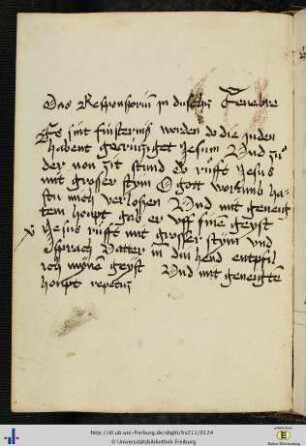 Das Responsorium in dutschz Tenebre
Es sint finsternis worden do die juden
habent gecruziget Jesum Und zuo
der non zit stund do rufft Jesus
mit grosser stym O gott worumb ha-
stu mich verlossen Und mit geneig
tem houpt gab er uff sine geyst
V Jesus rufft mit grosser stym und
sprach Vatter in din hend entpfil
ich mynen geyst Und mit geneigtem
houpt repetitur
http://dl.ub.uni-freiburg.de/diglit/hs212/0124
© Universitätsbibliothek Freiburg